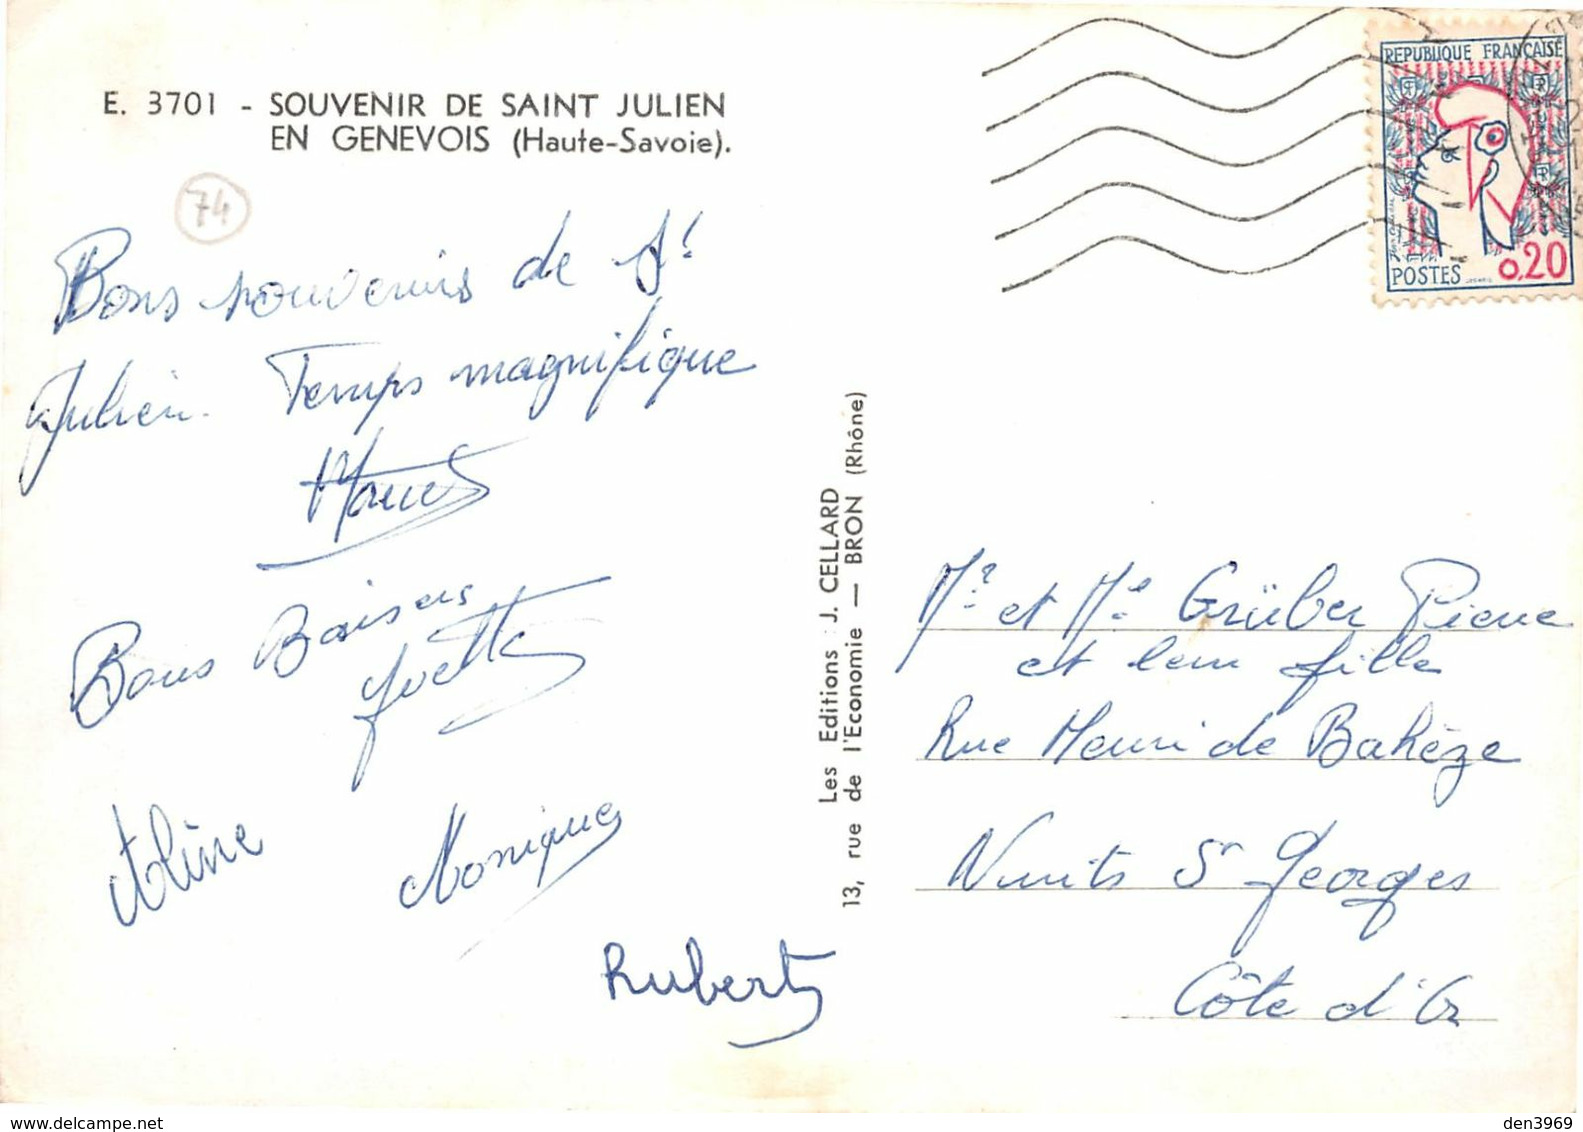 E. 3701 - SOUVENIR DE SAINT JULIEN
EN GENEVOIS (Haute-Savoie).
74
Bons souvenirs de St
Julien. Temps magnifique
Bons Baisers
Yvette
Aline
Monique
Hubert
Les Editions J. CELLARD
13, rue de l'Economie — BRON (Rhône)
REPUBLIQUE FRANÇAISE
POSTES 0,20
Mr et Me Grüber Pierre
et leur fille
Rue Henri de Bahèze
Nuits St Georges
Côte d'Or
den3969